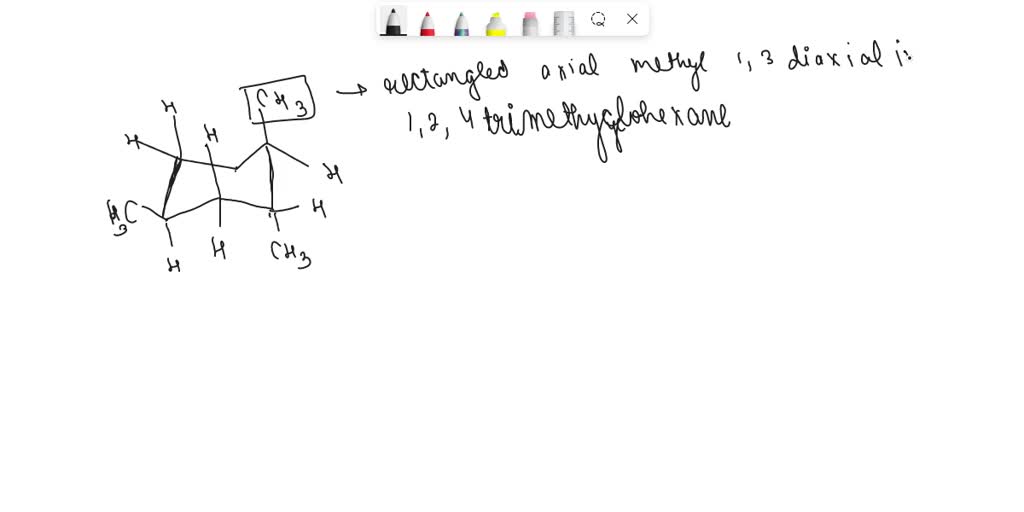 rectangled axial methyl 1,3 diaxial is
1,2,4 trimethycylohexane
CH3
H
H
H
H
H3C
H
H
H
CH3